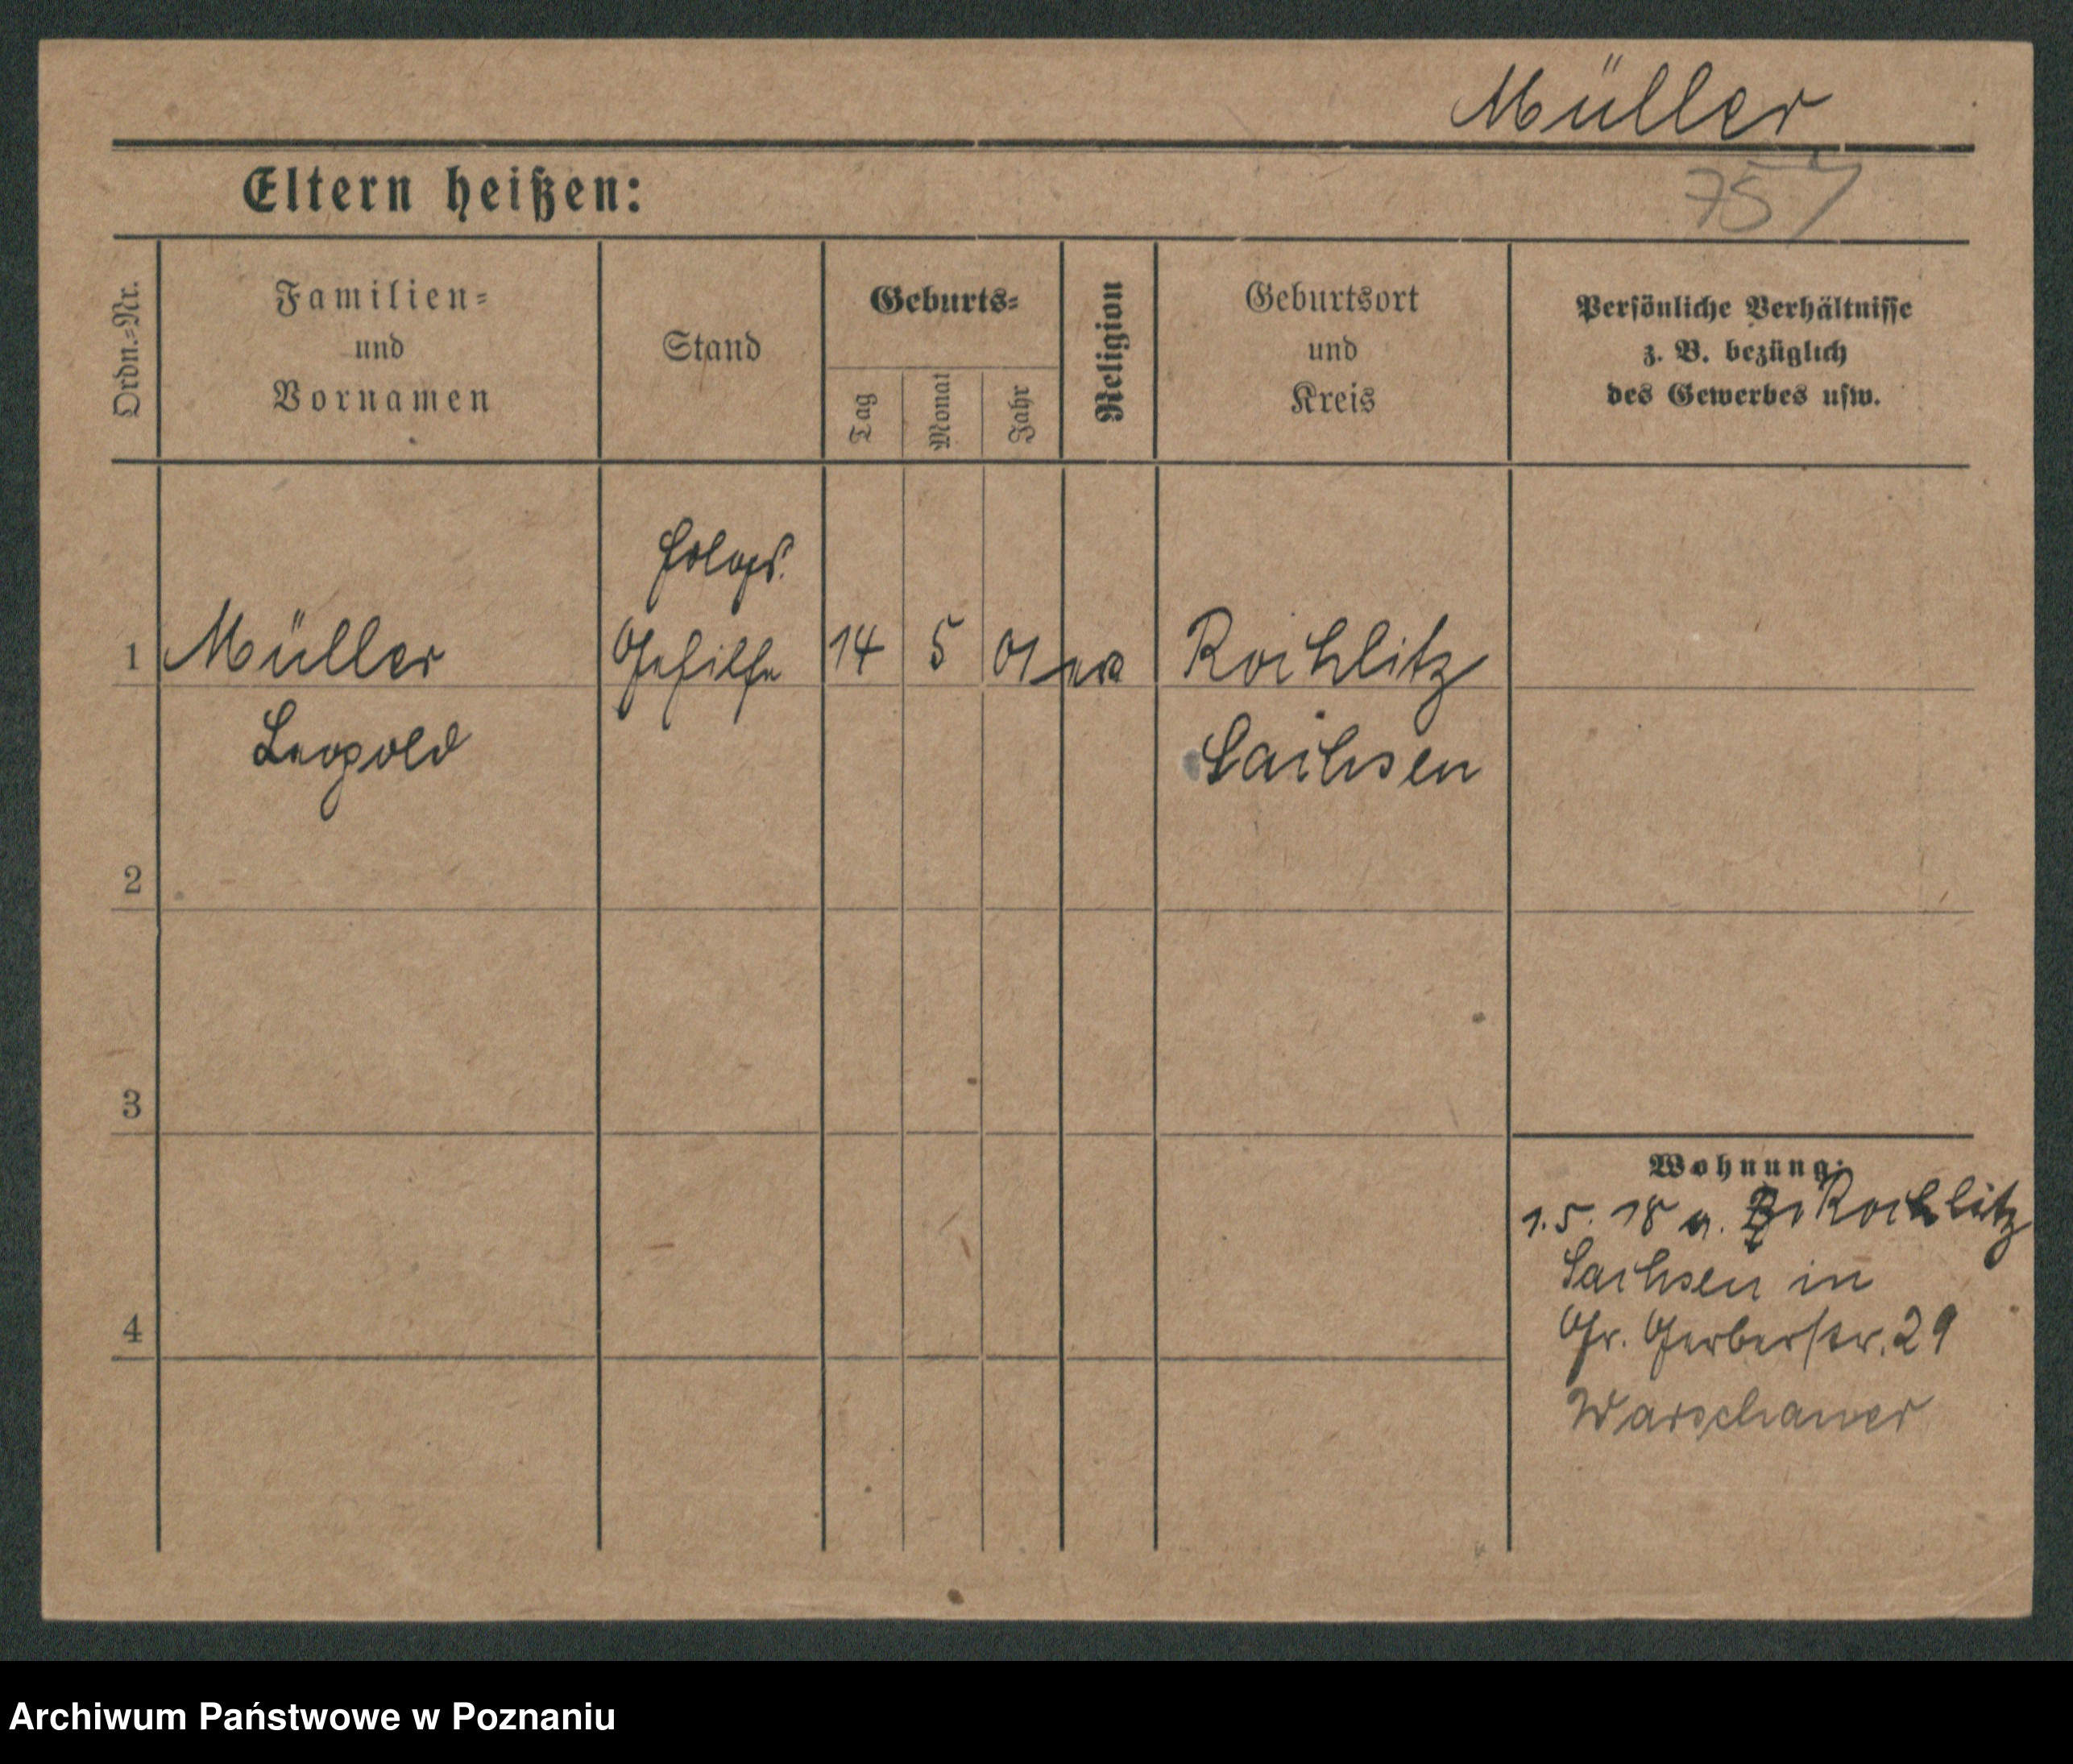 Müller
Eltern heißen:
757
Ordn.=Nr.
Familien=
und
Vornamen
Stand
Geburts=
Tag
Monat
Jahr
Religion
Geburtsort
und
Kreis
Persönliche Verhältnisse
z. B. bezüglich
des Gewerbes usw.
1 Müller Gehilfe 14 5 01 Rochlitz
Leopold Sachsen
2
3
4
Wohnung:
1.5. 18 a. Rochlitz
Sachsen in
Gr. Gerberstr. 29
Warschauer
Archiwum Państwowe w Poznaniu